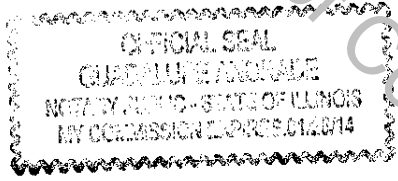 OFFICIAL SEAL
GUADALUPE ANDRADE
NOTARY PUBLIC - STATE OF ILLINOIS
MY COMMISSION EXPIRES